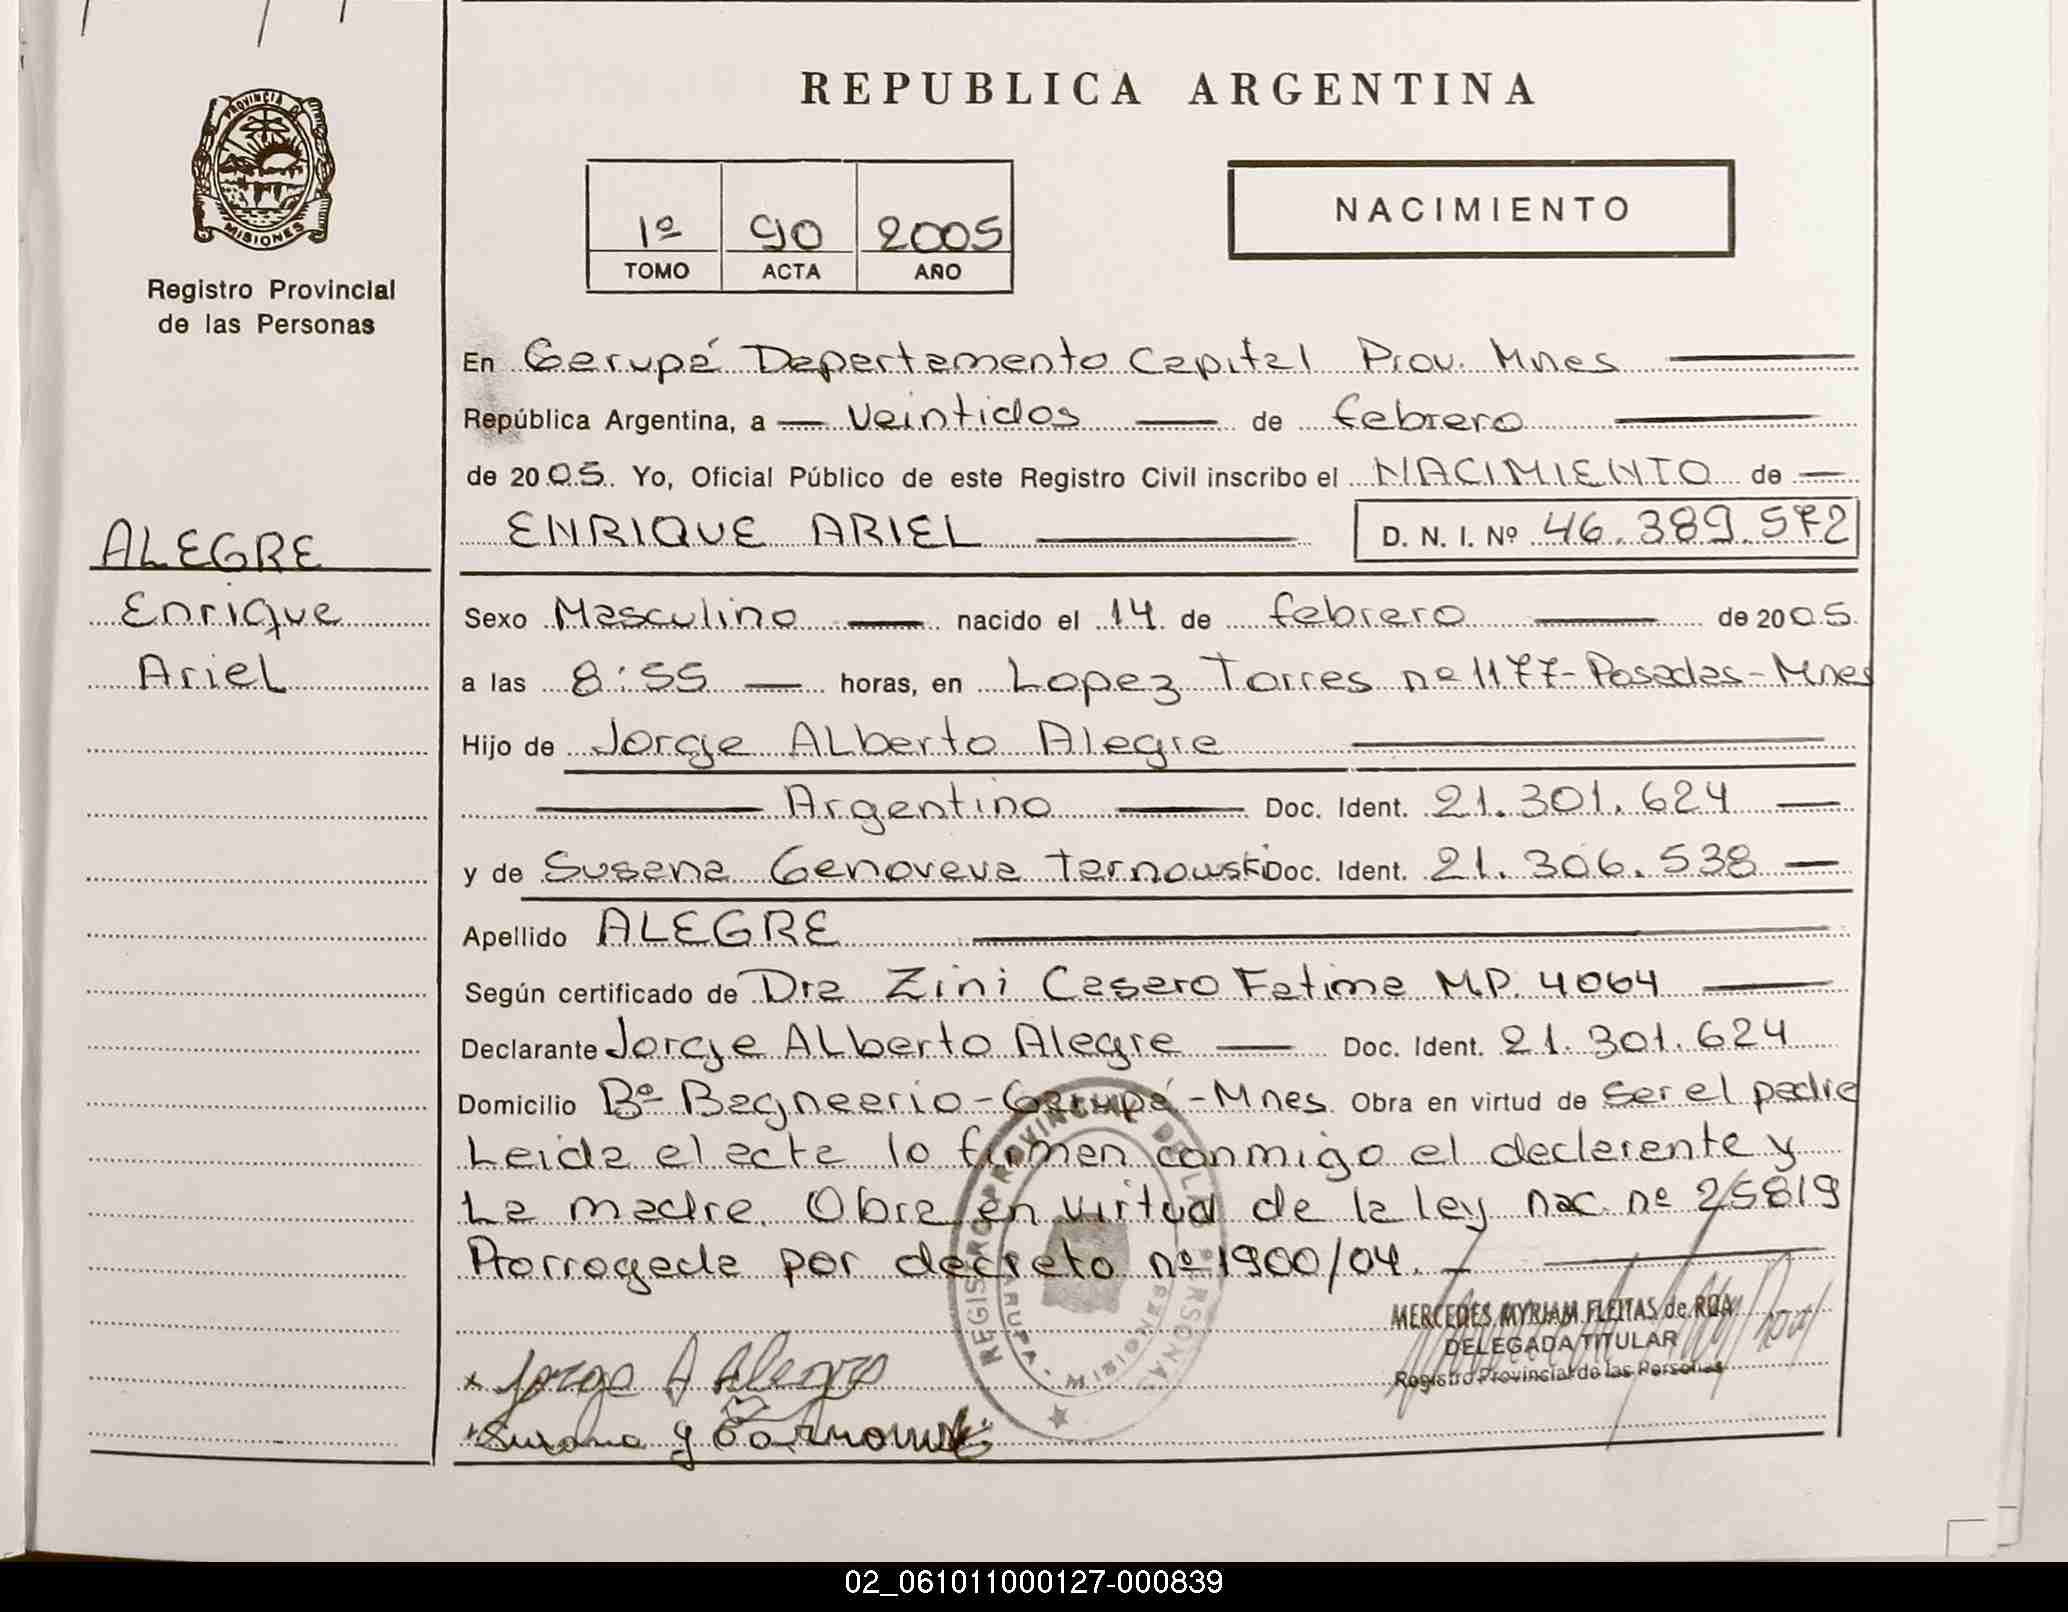 REPUBLICA ARGENTINA
PROVINCIA DE
MISIONES
Registro Provincial
de las Personas
1º 90 2005
TOMO ACTA AÑO
NACIMIENTO
En Garupá Departamento Capital Prov. Mnes
República Argentina, a veintidos de febrero
de 2005. Yo, Oficial Público de este Registro Civil inscribo el NACIMIENTO de
ENRIQUE ARIEL D. N. I. Nº 46.389.572
ALEGRE
Enrique
Ariel
Sexo Masculino nacido el 14 de febrero de 2005
a las 8:55 horas, en Lopez Torres nº 1177-Posadas-Mnes
Hijo de Jorge Alberto Alegre
Argentino Doc. Ident. 21.301.624
y de Susana Genoveva Tarnowski Doc. Ident. 21.306.538
Apellido ALEGRE
Según certificado de Dra Zini Casaro Fatima M.P. 4064
Declarante Jorge Alberto Alegre Doc. Ident. 21.301.624
Domicilio Bº Bagneario-Garupá-Mnes Obra en virtud de ser el padre
Leida el acta lo firman conmigo el declarante y
La madre. Obra en virtud de la ley nac. nº 25819
Prorrogada por decreto nº 1900/04.
REGISTRO PROVINCIAL DE LAS PERSONAS
MISIONES
MERCEDES MYRIAM FLEITAS de ROA
DELEGADA TITULAR
Registro Provincial de las Personas
x Jorge A Alegre
Susana G Tarnowski
02_061011000127-000839